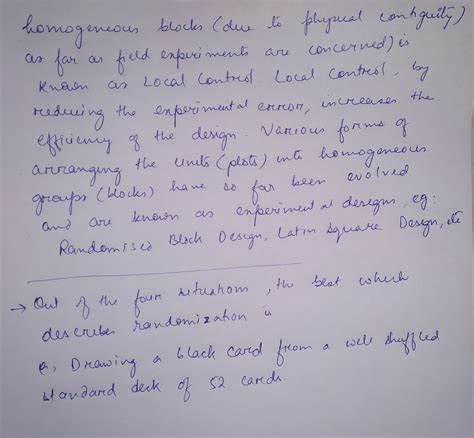 homogeneous blocks (due to physical contiguity)
as far as field experiments are concerned) is
known as Local Control. Local Control, by
reducing the experimental error, increases the
efficiency of the design. Various forms of
arranging the units (plots) into homogeneous
groups (blocks) have so far been evolved
and are known as experimental designs, eg:
Randomised Block Design, Latin Square Design, etc
→ Out of the four situations, the best which
describes randomization is
a, Drawing a black card from a well shuffled
standard deck of 52 cards.